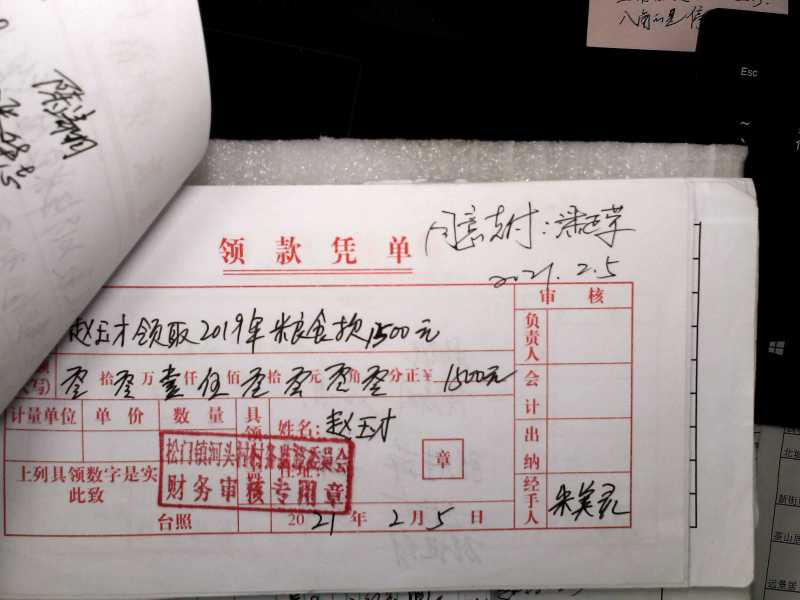 八
Esc
~
领款凭单
同意支付：潘
2021.2.5
审核
赵玉才领取2019年粮食款1500元
负责人
零拾零万壹仟伍佰零零元零零分正￥1500元
角
会计
计量单位 单价 数量
具领
姓名：赵玉才
出纳
松门镇河头村村务监督委员会
财务审核专用章
章
上列具领数字是实
此致
台照
2021年2月5日
经手人
朱美
新街
茶山居
远景居